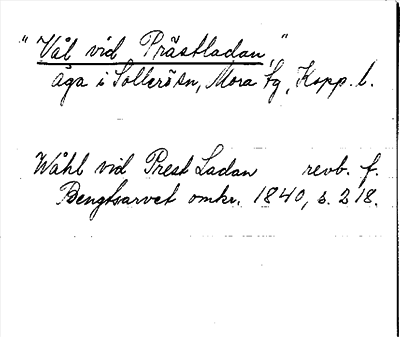 "Vål vid Prästladan,"
äga i Sollerösn, Mora tg, Kopp. l.
Wåhl vid Prest Ladan revb. f.
Bengtsarvet omkr. 1840, s. 218.